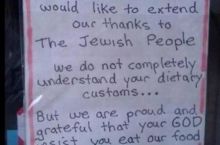 would like to extend
our thanks to
The Jewish People
we do not completely
understand your dietary
customs...
But we are proud and
grateful that your GOD
insist you eat our food